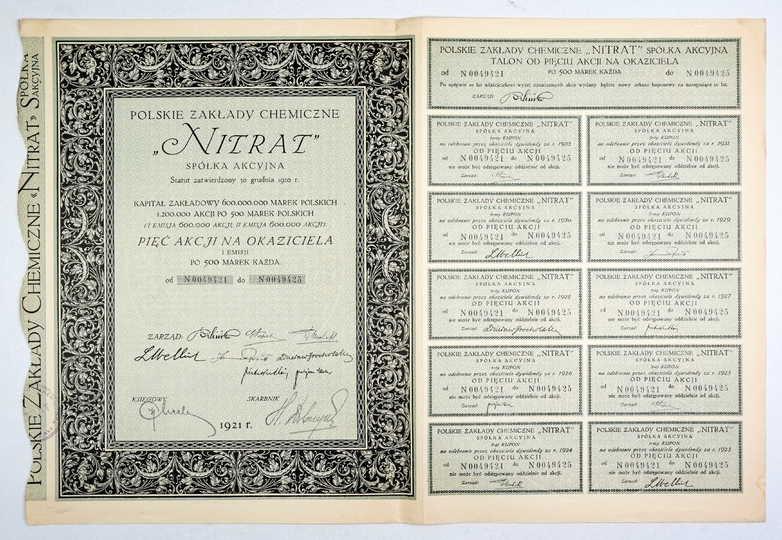 POLSKIE ZAKŁADY CHEMICZNE «NITRAT» SPÓŁKA AKCYJNA
POLSKIE ZAKŁADY CHEMICZNE
„NITRAT”
SPÓŁKA AKCYJNA
Statut zatwierdzony 30 grudnia 1920 r.
KAPITAŁ ZAKŁADOWY 600.000.000 MAREK POLSKICH
1.200.000 AKCJI PO 500 MAREK POLSKICH
(I EMISJA 600.000 AKCJI, II EMISJA 600.000 AKCJI)
PIĘĆ AKCJI NA OKAZICIELA
I EMISJI
PO 500 MAREK KAŻDA.
od N0049421 do N0049425
ZARZĄD:
KSIĘGOWY SKARBNIK
1921 r.
POLSKIE ZAKŁADY CHEMICZNE „NITRAT” SPÓŁKA AKCYJNA
TALON OD PIĘCIU AKCJI NA OKAZICIELA
od N0049421 PO 500 MAREK KAŻDA do N0049425
Po upływie 10 lat właścicielowi wyżej oznaczonych akcji wydany będzie nowy arkusz kuponowy na następujące 10 lat.
ZARZĄD
POLSKIE ZAKŁADY CHEMICZNE „NITRAT”
SPÓŁKA AKCYJNA
KUPON
na odebranie przez okaziciela dywidendy za r. 1932
OD PIĘCIU AKCJI
od N0049421 do N0049425
nie może być odstępowany oddzielnie od akcji.
Zarząd:
POLSKIE ZAKŁADY CHEMICZNE „NITRAT”
SPÓŁKA AKCYJNA
KUPON
na odebranie przez okaziciela dywidendy za r. 1931
OD PIĘCIU AKCJI
od N0049421 do N0049425
nie może być odstępowany oddzielnie od akcji.
Zarząd:
POLSKIE ZAKŁADY CHEMICZNE „NITRAT”
SPÓŁKA AKCYJNA
KUPON
na odebranie przez okaziciela dywidendy za r. 1930
OD PIĘCIU AKCJI
od N0049421 do N0049425
nie może być odstępowany oddzielnie od akcji.
Zarząd:
POLSKIE ZAKŁADY CHEMICZNE „NITRAT”
SPÓŁKA AKCYJNA
KUPON
na odebranie przez okaziciela dywidendy za r. 1929
OD PIĘCIU AKCJI
od N0049421 do N0049425
nie może być odstępowany oddzielnie od akcji.
Zarząd:
POLSKIE ZAKŁADY CHEMICZNE „NITRAT”
SPÓŁKA AKCYJNA
KUPON
na odebranie przez okaziciela dywidendy za r. 1928
OD PIĘCIU AKCJI
od N0049421 do N0049425
nie może być odstępowany oddzielnie od akcji.
Zarząd:
POLSKIE ZAKŁADY CHEMICZNE „NITRAT”
SPÓŁKA AKCYJNA
KUPON
na odebranie przez okaziciela dywidendy za r. 1927
OD PIĘCIU AKCJI
od N0049421 do N0049425
nie może być odstępowany oddzielnie od akcji.
Zarząd:
POLSKIE ZAKŁADY CHEMICZNE „NITRAT”
SPÓŁKA AKCYJNA
KUPON
na odebranie przez okaziciela dywidendy za r. 1926
OD PIĘCIU AKCJI
od N0049421 do N0049425
nie może być odstępowany oddzielnie od akcji.
Zarząd:
POLSKIE ZAKŁADY CHEMICZNE „NITRAT”
SPÓŁKA AKCYJNA
KUPON
na odebranie przez okaziciela dywidendy za r. 1925
OD PIĘCIU AKCJI
od N0049421 do N0049425
nie może być odstępowany oddzielnie od akcji.
Zarząd:
POLSKIE ZAKŁADY CHEMICZNE „NITRAT”
SPÓŁKA AKCYJNA
KUPON
na odebranie przez okaziciela dywidendy za r. 1924
OD PIĘCIU AKCJI
od N0049421 do N0049425
nie może być odstępowany oddzielnie od akcji.
Zarząd:
POLSKIE ZAKŁADY CHEMICZNE „NITRAT”
SPÓŁKA AKCYJNA
KUPON
na odebranie przez okaziciela dywidendy za r. 1923
OD PIĘCIU AKCJI
od N0049421 do N0049425
nie może być odstępowany oddzielnie od akcji.
Zarząd: